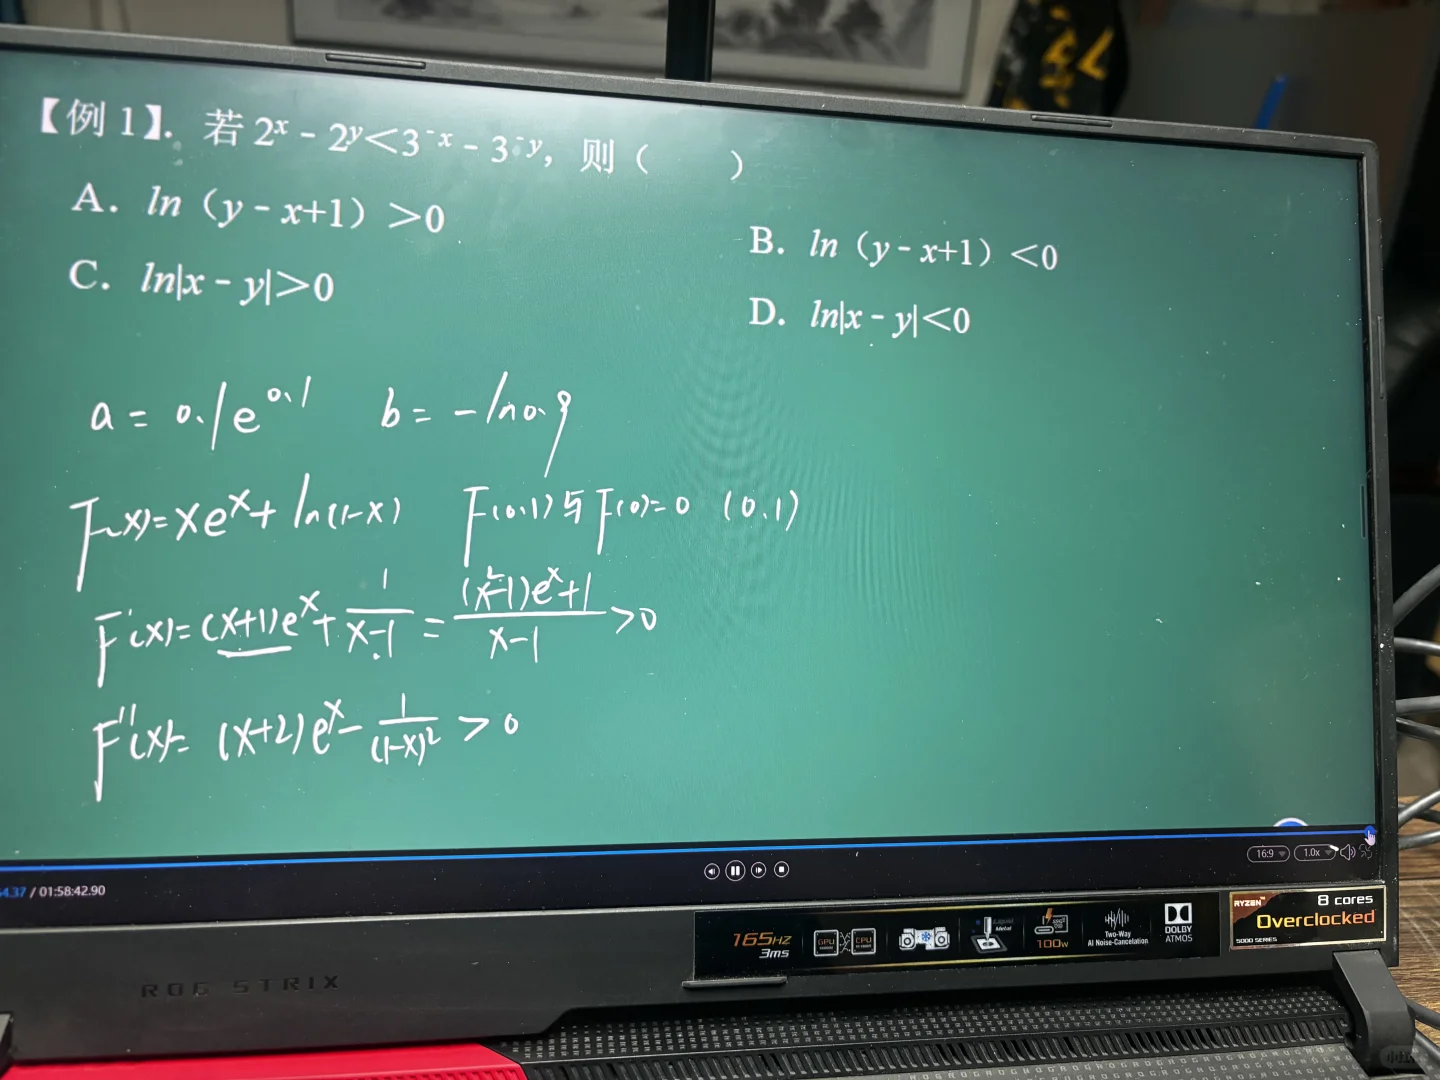 【例1】. 若 2ˣ - 2ʸ<3⁻ˣ - 3⁻ʸ, 则 ( )
A. ln (y - x+1) >0
B. ln (y - x+1) <0
C. ln|x - y|>0
D. ln|x - y|<0
a = 0.1e^0.1 b = -ln0.9
F(x)=xeˣ+ ln(1-x) F(0.1)与F(0)=0 (0.1)
F'(x)=(x+1)eˣ+ 1/(x-1) = ((x²-1)eˣ+1)/(x-1) >0
F''(x)= (x+2)eˣ- 1/(1-x)² >0
54.37 / 01:58:42.90
16:9 1.0x
165HZ 3ms
GPU CPU
100W
Two-Way AI Noise-Cancelation
DOLBY ATMOS
RYZEN™ 5000 SERIES
8 cores Overclocked
ROG STRIX